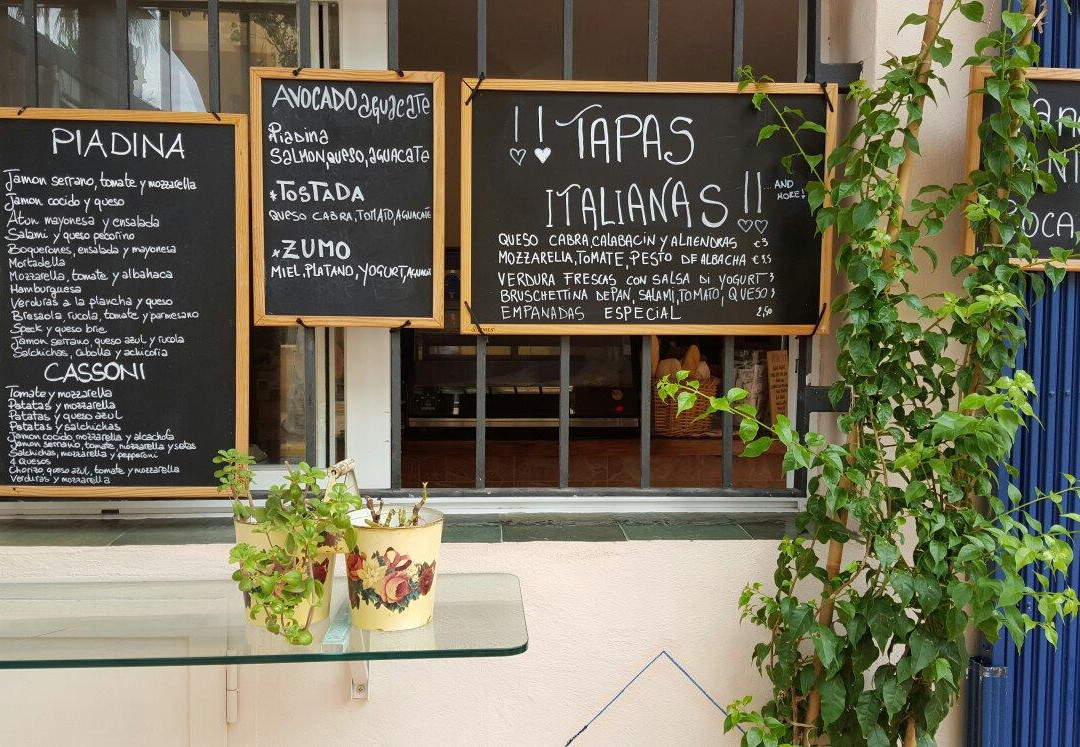 PIADINA
Jamon serrano, tomate y mozzarella
Jamon cocido y queso
Atun mayonesa y ensalada
Salami y queso pecorino
Boquerones, ensalada y mayonesa
Mortadella
Mozzarella, tomate y albahaca
Hamburguesa
Verduras a la plancha y queso
Bresaola, rucola, tomate y parmesano
Speck y queso brie
Jamon serrano, queso azul y rucola
Salchichas, cebolla y achicoria
CASSONI
Tomate y mozzarella
Patatas y mozzarella
Patatas y queso azul
Patatas y salchichas
Jamon cocido mozzarella y alcachofa
Jamon serrano, tomate, mozzarella y setas
Salchichas, mozzarella y pepperoni
4 Quesos
Chorizo, queso azul, tomate y mozzarella
Verduras y mozzarella
AVOCADO aguacate
Piadina
SALMON, QUESO, AGUACATE
*TOSTADA
QUESO CABRA, TOMATO, AGUACATE
*ZUMO
MIEL, PLATANO, YOGURT,
!! TAPAS
ITALIANAS !!
AND
MORE!
QUESO CABRA, CALABACIN Y ALMENDRAS €3
MOZZARELLA, TOMATE, PESTO DE ALBACHA €3,5
VERDURA FRESCAS CON SALSA DI YOGURT 3
BRUSCHETTINA DE PAN, SALAMI, TOMATO, QUESO 3
EMPANADAS ESPECIAL 2,50